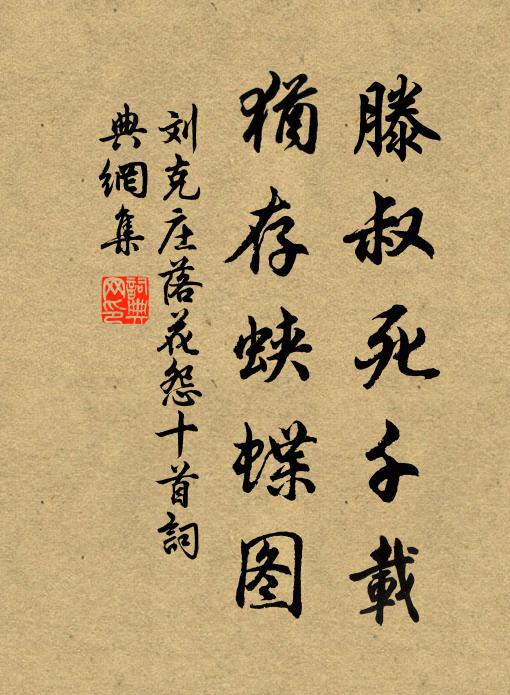 滕叔死千載
猶存蛱蝶图
刘克庄落花怨十首詞
典網集
詞典网印